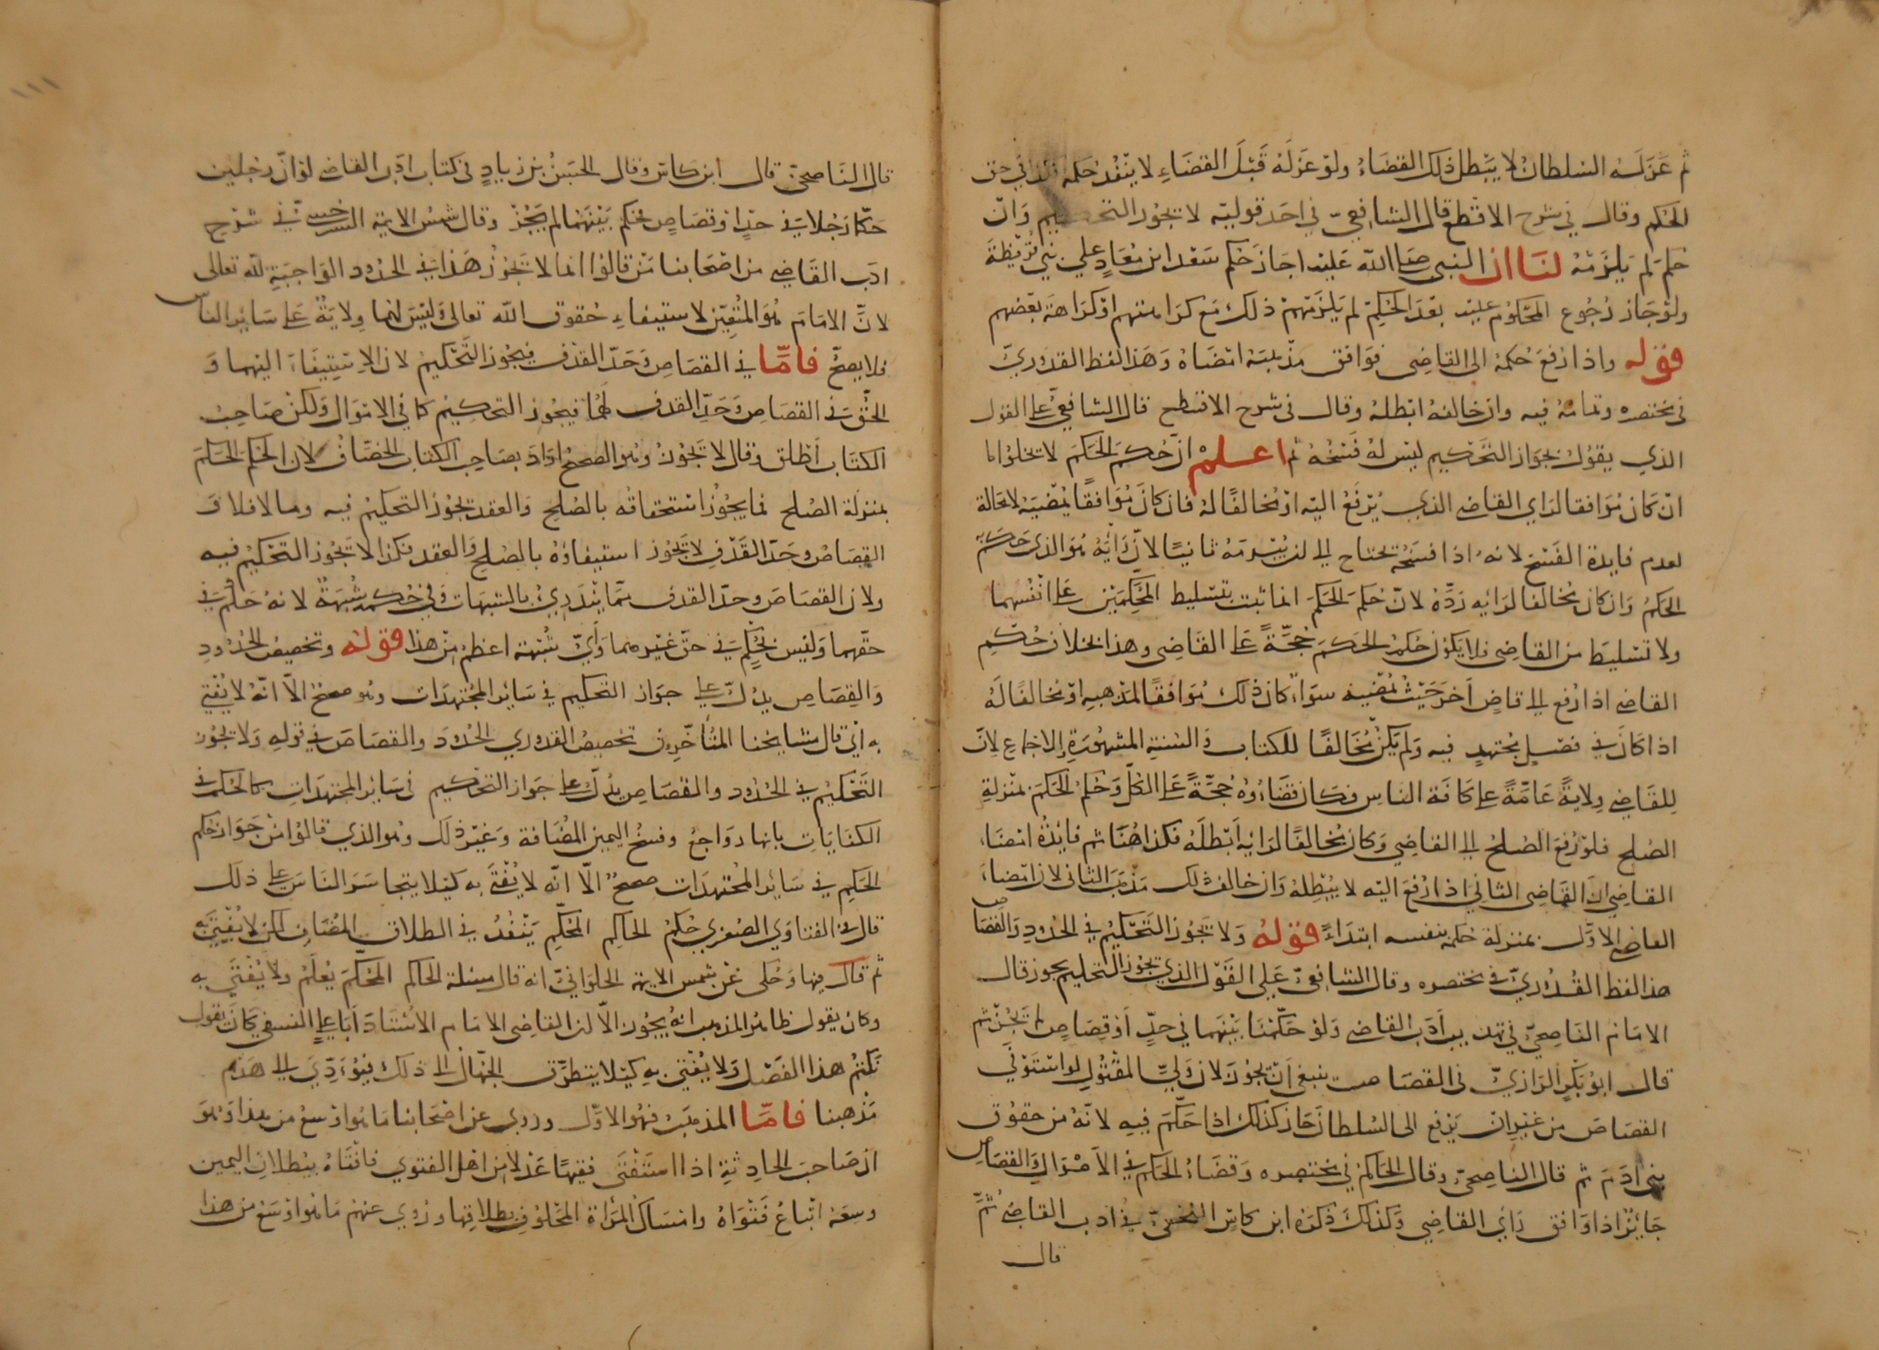 ثم عزله السلطان لا يبطل ذلك القضاء ولو عزله قبل القضاء لا ينفذ حكمه فكذا في حق
الحكم وقال في شرح الاقطع قال الشافعي في احد قوليه لا تجوز التحكيم وان
حكم لم يلزمه لنا ان النبي صلى الله عليه اجاز حكم سعد ابن معاذ علي بني قريظة
ولو جاز رجوع المحكوم عليه بعد الحكم لم يلزمهم ذلك مع كرامتهم او كراهة بعضهم
قوله واذا رفع حكمه الى القاضى فوافق مذهبه امضاه وهذا لفظ القدوري
في مختصره وتمامه فيه وان خالفه ابطله وقال في شرح الاقطع قال الشافعي على القول
الذي يقول بجواز التحكيم ليس له فسخه ثم اعلم ان حكم الحكم لا يخلوا اما
ان كان موافقا لراي القاضي الذي يرفع اليه او مخالفا له فان كان موافقا يمضيه لا محالة
لعدم فايدة الفسخ لانه اذا فسخه يحتاج الى ان يبرمه ثانيا لان رايه هو الذي حكم به
الحكم وان كان مخالفا لرايه رده لان حكم الحكم انما ثبت بتسليط المحكمين على انفسهما
ولا تسليط من القاضى فلا يكون حكم الحكم حجة على القاضى وهذا بخلاف حكم
القاضي اذا رفع الى قاض اخر حيث يمضيه سواء كان ذلك موافقا لمذهبه او مخالفا له
اذا كان في فصل مجتهد فيه ولم يكن مخالفا للكتاب والسنة المشهورة والاجماع لان
للقاضي ولاية عامة على كافة الناس فكان قضاؤه حجة على الكل وحكم الحكم بمنزلة
الصلح فلو رفع الصلح الى القاضي وكان مخالفا لرايه ابطله فكذا هنا ثم فايدة امضاء
القاضي ان القاضى الثاني اذا رفع اليه لا يبطله وان خالف ذلك مذهب الثاني لان امضاء
القاضي الاول بمنزلة حكمه بنفسه ابتداء قوله ولا تجوز التحكيم في الحدود والقصاص
هذا لفظ القدوري في مختصره وقال الشافعي على القول الذي يجوز التحكيم يجوز قال
الامام الناصحي في تهذيب ادب القاضي ولو حكمنا بينهما في حد او قصاص لم تجز ثم
قال ابو بكر الرازي في القصاص ينبغي ان تجوز لان ولي المقتول لو استوفي
القصاص من غير ان يرفع الى السلطان جاز كذلك اذا حكم فيه لانه من حقوق
بني ادم ثم قال الناصحي وقال الحاكم في مختصره وقضاء الحكم في الاموال والقصاص
جائز اذا وافق راي القاضي وكذلك ذكره ابن كاس النخعي في ادب القاضي ثم
قال
١١١
قال الناصحي قال ابن كاس وقال الحسن بن زياد في كتاب ادب القاضي لو ان رجلين
حكما رجلا في حد او قصاص فحكم بينهما لم يجز وقال شمس الايمة السرخسي في شرح
ادب القاضي من اصحابنا من قالوا انما لا تجوز هذا في الحدود الواجبة لله تعالى
لان الامام هو المتعين لاستيفاء حقوق الله تعالى وليس لهما ولاية على سائر الناس
فلا يصح فاما في القصاص وحد القذف فيجوز التحكيم لان الاستيفاء اليهما و
الحق في القصاص وحد القذف لهما فيجوز التحكيم كما في الاموال ولكن صاحب
الكتاب اطلق وقال لا تجوز وهو الصحيح اراد بصاحب الكتاب الخصاف لان الحكم الحكم
بمنزلة الصلح فما يجوز استحقاقه بالصلح والعقد تجوز التحكيم فيه وما لا فلا و
القصاص وحد القذف لا تجوز استيفاؤه بالصلح والعقد فكذا لا تجوز التحكيم فيه
ولان القصاص وحد القذف مما يندري بالشبهات وفي حكمه شبهة لانه حكم في
حقهما وليس بحكم في حق غيرهما واي شبهة اعظم من هذا قوله وتخصيص الحدود
والقصاص يدل على جواز التحكيم في سائر المجتهدات وهو صحيح الا انه لا يفتي
به اي قال مشايخنا المتاخرون تخصيص القدوري الحدود والقصاص في قوله ولا تجوز
التحكيم في الحدود والقصاص يدل على جواز التحكيم في سائر المجتهدات كالحكم في
الكنايات بانها رواجع وفسخ اليمين المضافة وغير ذلك وهو الذي قالوا من جواز حكم
الحكم في سائر المجتهدات صحيح الا انه لا يفتى به كيلا يتجاسر الناس على ذلك
قال في الفتاوي الصغرى حكم الحاكم المحكم ينفذ في الطلاق المضاف لكن لا يفتى به
ثم قال فيها وحكى عن شمس الايمة الحلواني انه قال مسئلة الحاكم المحكم يعلم ولا يفتى به
وكان يقول ظاهر المذهب انه يجوز الا ان القاضى الامام الاستاد ابا علي النسفي كان يقول
نكتم هذا الفصل ولا يفتي به كيلا يتطرق الجهال الى ذلك فيؤدي الى هدم
مذهبنا فاما المذهب فهو الاول وروي عن اصحابنا ما هو اوسع من هذا وهو
ان صاحب الحادثة اذا استفتى فقيها عدلا من اهل الفتوي فافتاه ببطلان اليمين
وسعه اتباع فتواه وامساك المراة المحلوف بطلاقها وروي عنهم ما هو اوسع من هذا